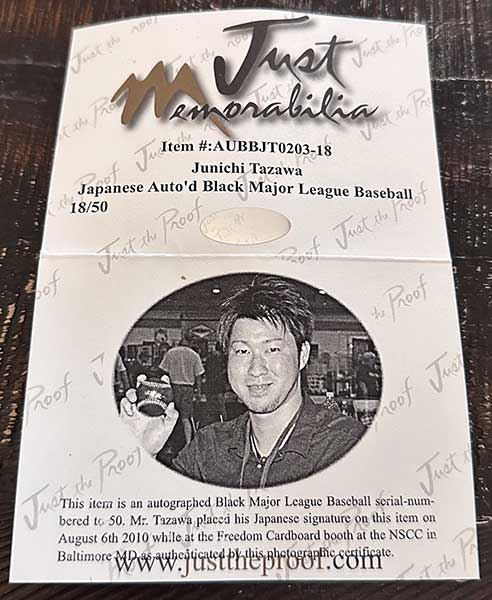 Just
Memorabilia
Item #:AUBBJT0203-18
Junichi Tazawa
Japanese Auto'd Black Major League Baseball
18/50
This item is an autographed Black Major League Baseball serial-num-
bered to 50. Mr. Tazawa placed his Japanese signature on this item on
August 6th 2010 while at the Freedom Cardboard booth at the NSCC in
Baltimore MD as authenticated by this photographic certificate.
www.justtheproof.com